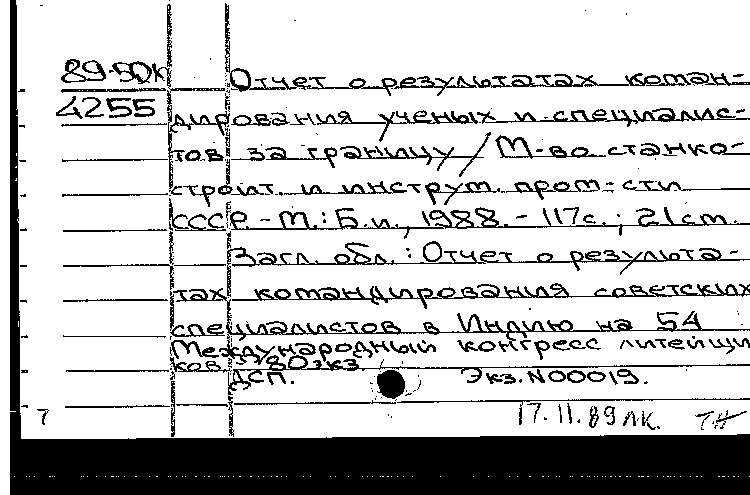 89-50к Отчет о результатах коман-
4255 дирования ученых и специалис-
тов за границу / М-во станко-
строит. и инструм. пром-сти
СССР. - М.: Б.и., 1988. - 117с.; 21 см.
Загл. обл.: Отчет о результа-
тах командирования советских
специалистов в Индию на 54
Международный конгресс литейщи
ков. - 80экз.
ДСП. Экз. N00019.
7 17.11.89 ЛК.